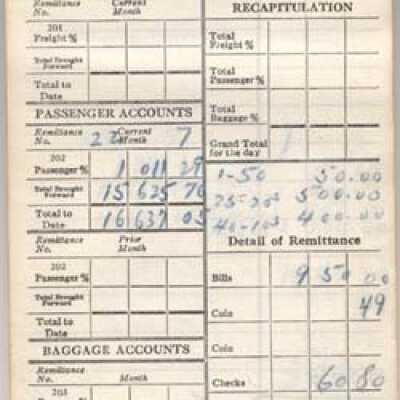 Remittance No. Current Month
201 Freight %
Total Brought Forward
Total to Date
PASSENGER ACCOUNTS
Remittance No. 22 Current Month 7
202 Passenger % 1 011 29
Total Brought Forward 15 625 76
Total to Date 16 637 05
Remittance No. Prior Month
202 Passenger %
Total Brought Forward
Total to Date
BAGGAGE ACCOUNTS
Remittance No. Month
203
RECAPITULATION
Total Freight %
Total Passenger %
Total Baggage %
Grand Total for the day
1-50 50.00
25-20s 500.00
40-10s 400.00
Detail of Remittance
Bills 950 00
Coin 49
Coin
Checks 60 80